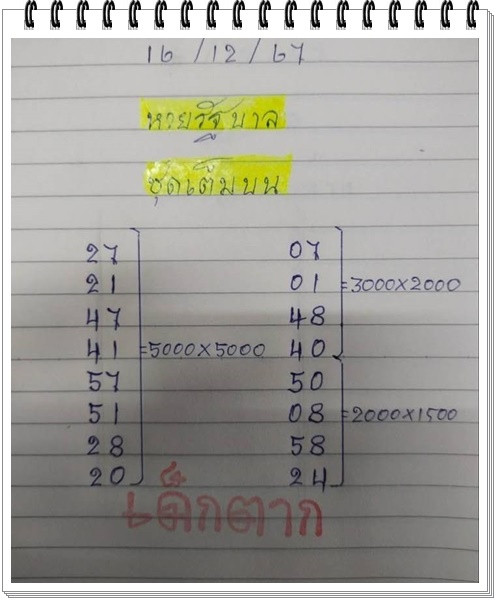 16/12/67
หวยรัฐบาล
ชุดเต็มบน
27
21
47
41 =5000×5000
57
51
28
20
07
01 =3000×2000
48
40
50
08 =2000×1500
58
24
เด็กตาก